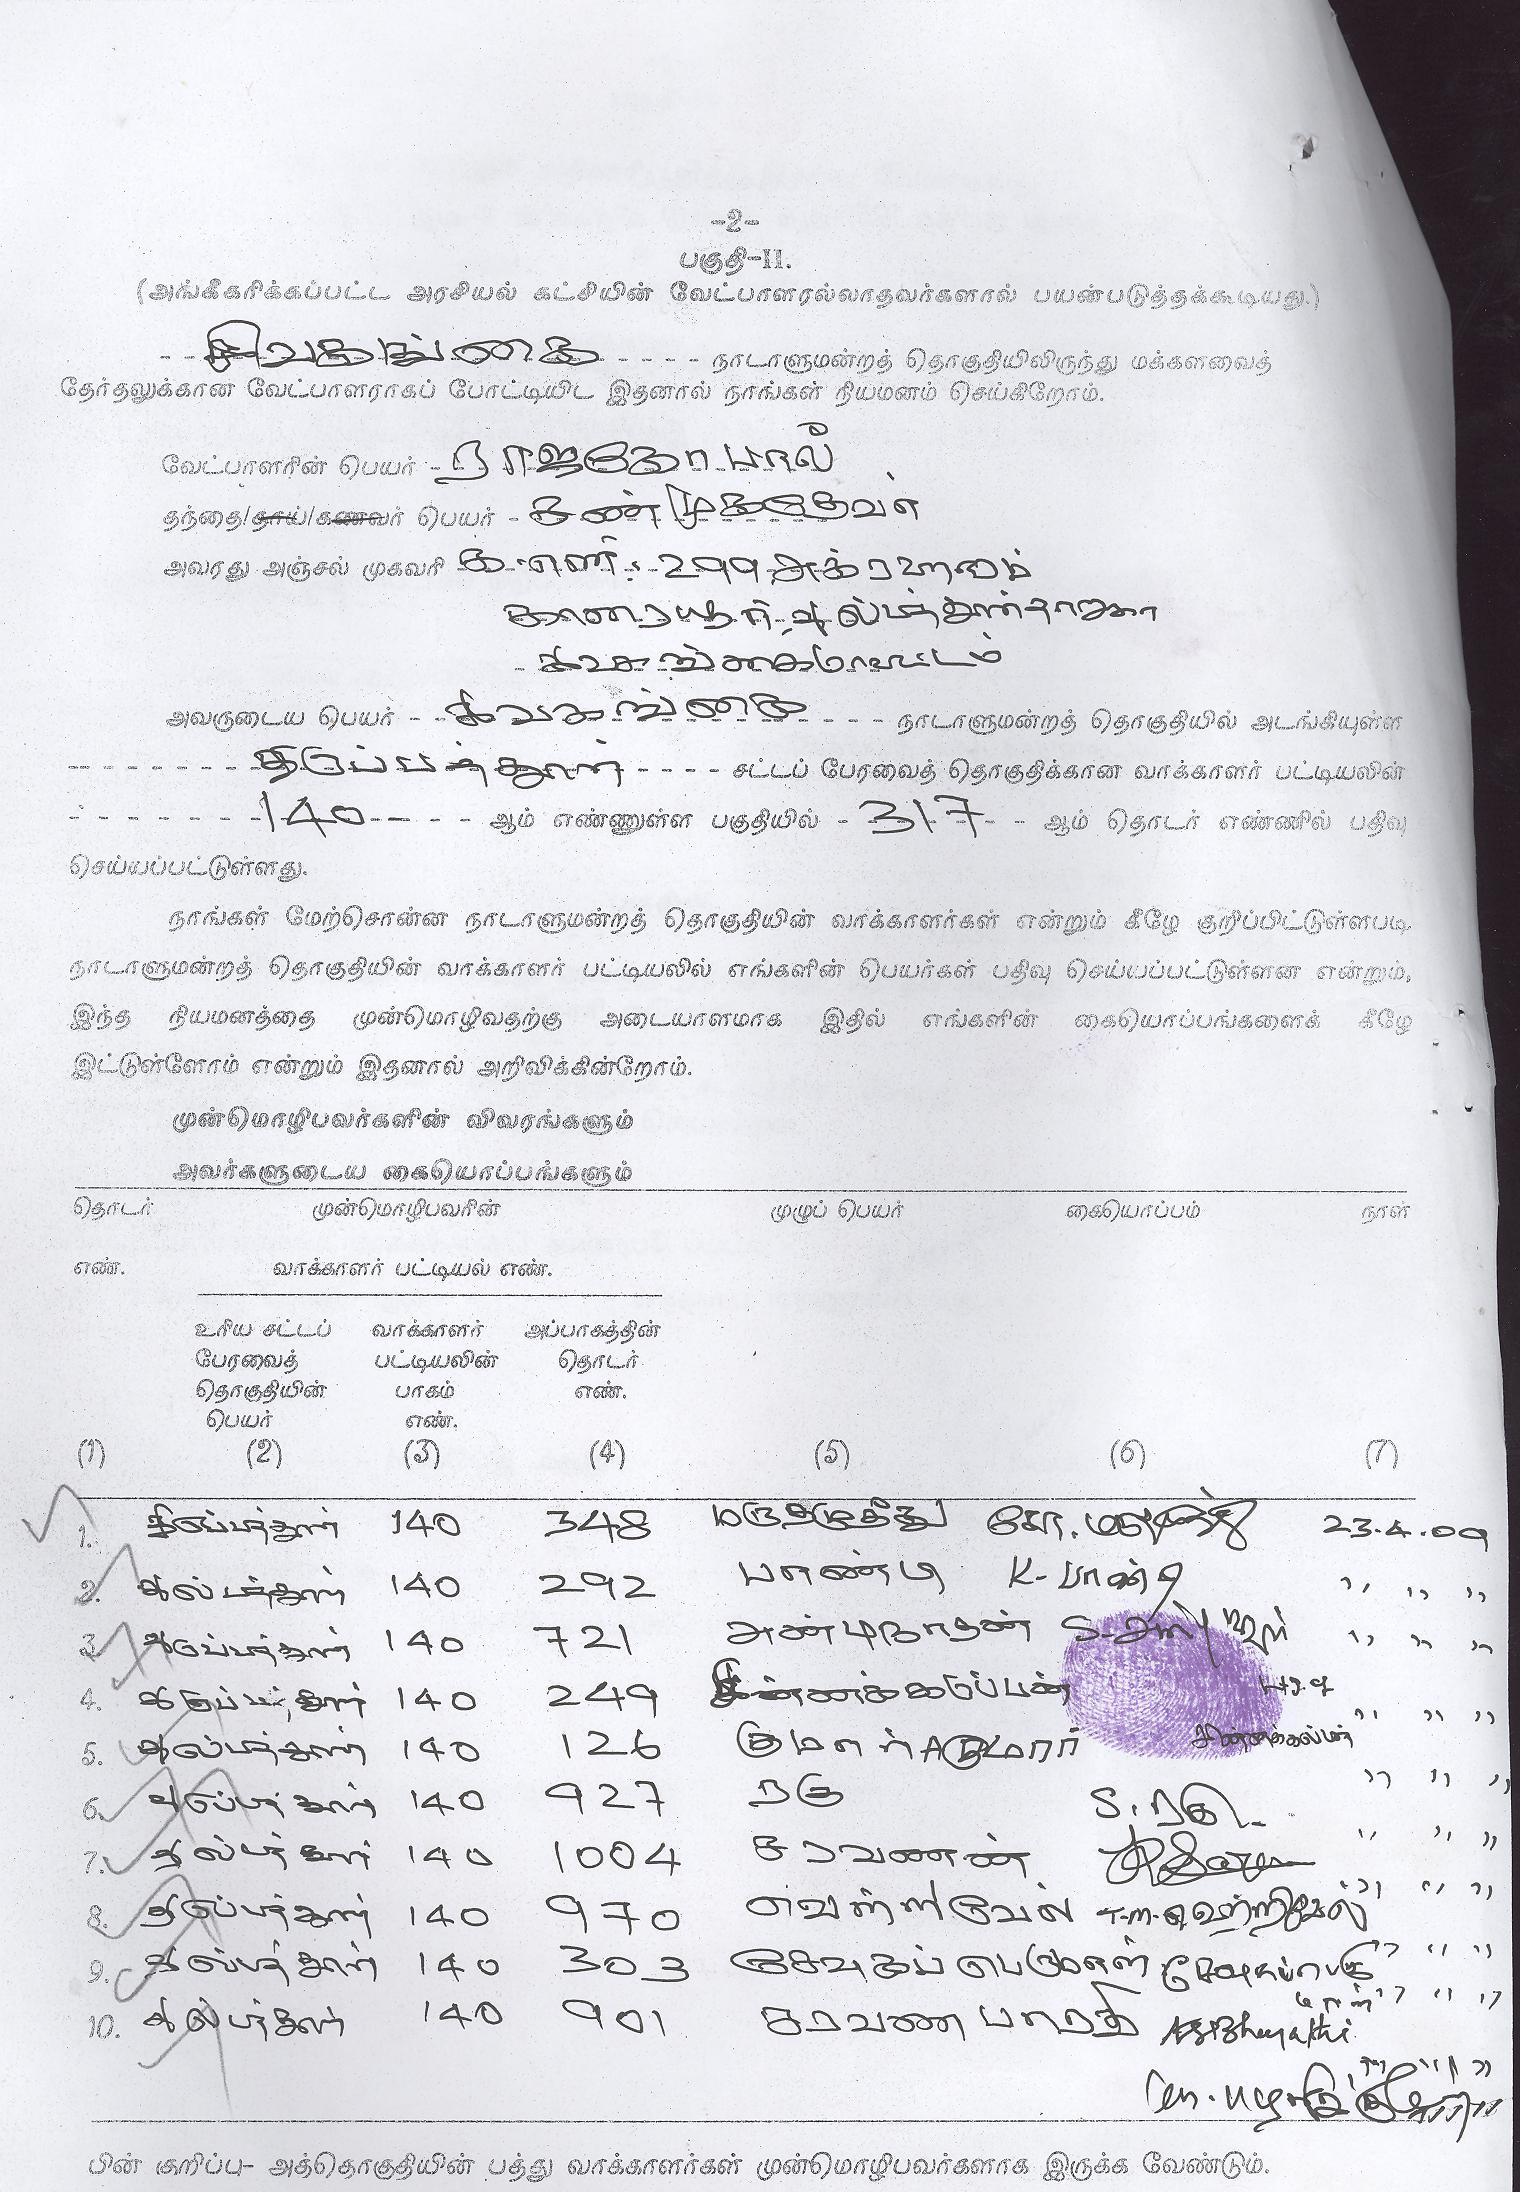 -2-
பகுதி-II.
(அங்கீகரிக்கப்பட்ட அரசியல் கட்சியின் வேட்பாளரல்லாதவர்களால் பயன்படுத்தக்கூடியது.)
சிவகங்கை நாடாளுமன்றத் தொகுதியிலிருந்து மக்களவைத்
தேர்தலுக்கான வேட்பாளராகப் போட்டியிட இதனால் நாங்கள் நியமனம் செய்கிறோம்.
வேட்பாளரின் பெயர் - ராஜகோபால்
தந்தை/தாய்/கணவர் பெயர் -
அவரது அஞ்சல் முகவரி க.எண். 299 அக்ரஹாரம்
காரையூர், திருப்பத்தூர் தாலுகா
சிவகங்கை மாவட்டம்
அவருடைய பெயர் - சிவகங்கை நாடாளுமன்றத் தொகுதியில் அடங்கியுள்ள
திருப்பத்தூர் சட்டப் பேரவைத் தொகுதிக்கான வாக்காளர் பட்டியலின்
140 ஆம் எண்ணுள்ள பகுதியில் - 317 - ஆம் தொடர் எண்ணில் பதிவு
செய்யப்பட்டுள்ளது.
நாங்கள் மேற்சொன்ன நாடாளுமன்றத் தொகுதியின் வாக்காளர்கள் என்றும் கீழே குறிப்பிட்டுள்ளபடி
நாடாளுமன்றத் தொகுதியின் வாக்காளர் பட்டியலில் எங்களின் பெயர்கள் பதிவு செய்யப்பட்டுள்ளன என்றும்,
இந்த நியமனத்தை முன்மொழிவதற்கு அடையாளமாக இதில் எங்களின் கையொப்பங்களைக் கீழே
இட்டுள்ளோம் என்றும் இதனால் அறிவிக்கின்றோம்.
முன்மொழிபவர்களின் விவரங்களும்
அவர்களுடைய கையொப்பங்களும்
தொடர் முன்மொழிபவரின் முழுப் பெயர் கையொப்பம் நாள்
எண். வாக்காளர் பட்டியல் எண்.
உரிய சட்டப் வாக்காளர் அப்பாகத்தின்
பேரவைத் பட்டியலின் தொடர்
தொகுதியின் பாகம் எண்.
பெயர் எண்.
(1) (2) (3) (4) (5) (6) (7)
1. திருப்பத்தூர் 140 348 மருதமுத்து 23.4.09
2. திருப்பத்தூர் 140 292 பாண்டி K. பாண்டி " " "
3. திருப்பத்தூர் 140 721 " " "
4. திருப்பத்தூர் 140 249 சின்னக்கருப்பன் " " "
5. திருப்பத்தூர் 140 126 சின்னக்கருப்பன் " " "
6. திருப்பத்தூர் 140 927 ரகு S. ரகு " " "
7. திருப்பத்தூர் 140 1004 சரவணண் " " "
8. திருப்பத்தூர் 140 970 T.M. வெற்றிவேல் " " "
9. திருப்பத்தூர் 140 303 சேவுகப்பெருமாள் " " "
10. திருப்பத்தூர் 140 901 சரவண பாரதி " " "
பின் குறிப்பு- அத்தொகுதியின் பத்து வாக்காளர்கள் முன்மொழிபவர்களாக இருக்க வேண்டும்.